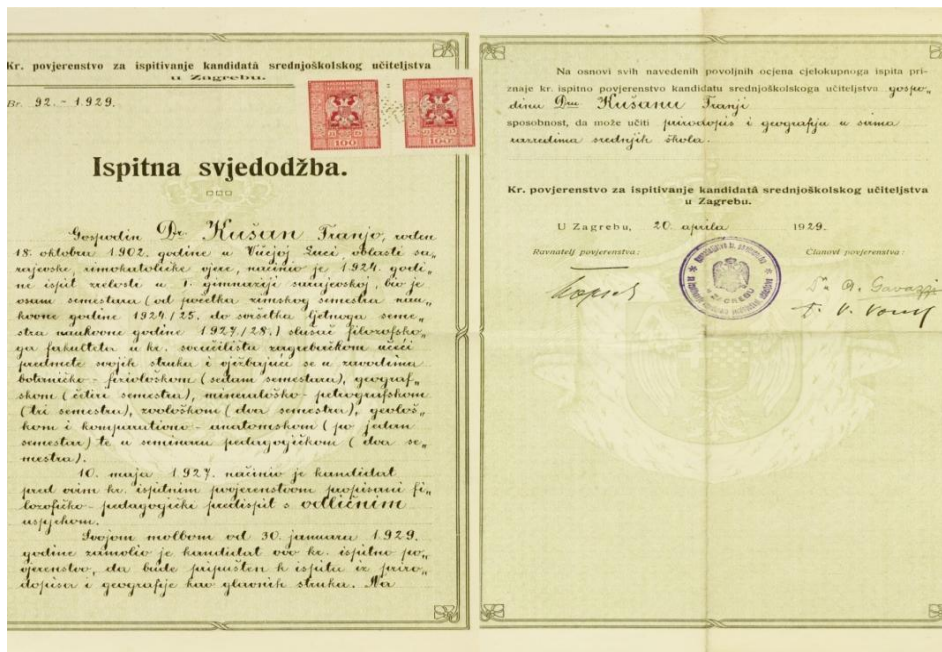 Kr. povjerenstvo za ispitivanje kandidatâ srednjoškolskog učiteljstva
u Zagrebu.
Br. 92. - 1929.
100
100
Ispitna svjedodžba.
Gospodin Dr. Kušan Franjo, rođen
18. oktobra 1902. godine u Vučjoj Luci, oblasti sa„
rajevske, rimokatoličke vjere, načinio je 1924. godi„
ne ispit zrelosti u I. gimnaziji sarajevskoj, bio je
osam semestara (od početka zimskog semestra nau„
kovne godine 1924/25. do svršetka ljetnoga seme„
stra naukovne godine 1927/28.) slušač filozofsko„
ga fakulteta u kr. sveučilištu zagrebačkom učeći
predmete svojih struka i vježbajući se u zavodima
botaničko-fiziološkom (sedam semestara), geograf„
skom (četiri semestra), mineraloško-petrografskom
(tri semestra), zoološkom (dva semestra), geološ„
kom i komparativno-anatomskom (po jedan
semestar) te u seminaru pedagogičkom (dva se„
mestra).
10. maja 1927. načinio je kandidat
pred ovim kr. ispitnim povjerenstvom propisani fi„
lozofičko-pedagogički predispit s odličnim
uspjehom.
Svojom molbom od 30. januara 1929.
godine zamolio je kandidat ovo kr. ispitno po„
vjerenstvo, da bude pripušten k ispitu iz priro„
dopisa i geografije kao glavnih struka. Na
Na osnovi svih navedenih povoljnih ocjena cjelokupnoga ispita pri-
znaje kr. ispitno povjerenstvo kandidatu srednjoškolskoga učiteljstva gospo„
dinu Dru Kušanu Franji
sposobnost, da može učiti prirodopis i geografiju u svima
razredima srednjih škola.
Kr. povjerenstvo za ispitivanje kandidatâ srednjoškolskog učiteljstva
u Zagrebu.
U Zagrebu, 20. aprila 1929.
Ravnatelj povjerenstva:
Članovi povjerenstva:
Dr. A. Gavazzi